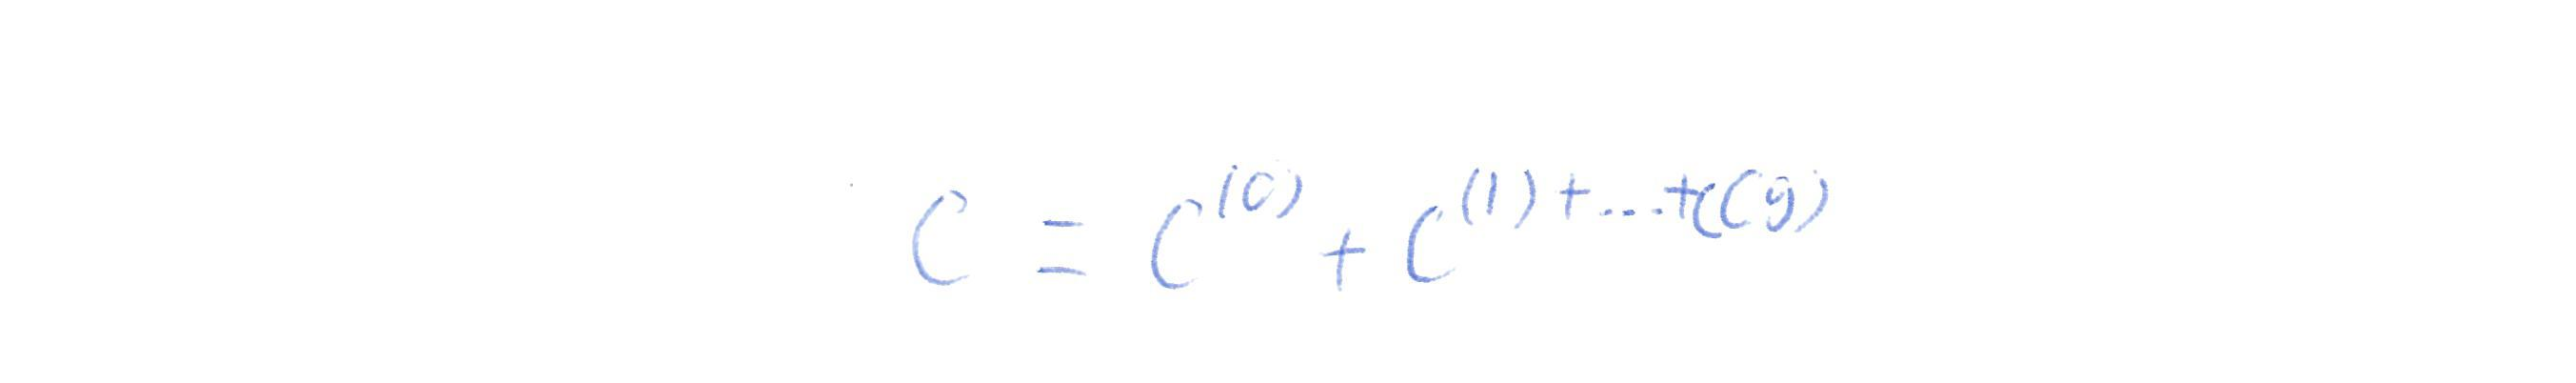 C = C^{(0)} + C^{(1) + ... + C(g)}